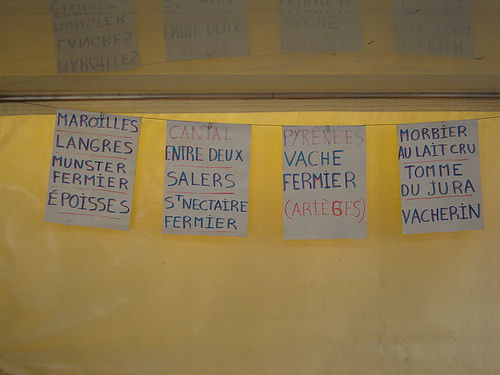 MAROILLES
LANGRES
MUNSTER
FERMIER
ÉPOISSES
CANTAL
ENTRE DEUX
SALERS
ST NECTAIRE
FERMIER
PYRÉNÉES
VACHE
FERMIER
(ARIÈGES)
MORBIER
AU LAIT CRU
TOMME
DU JURA
VACHERIN